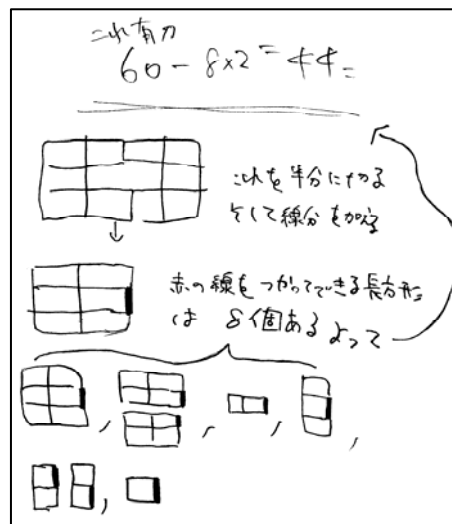 これ有力
60-8×2=44=
これを半分に切る
そして線分を加える
赤の線をつかってできる長方形
は 8個ある よって